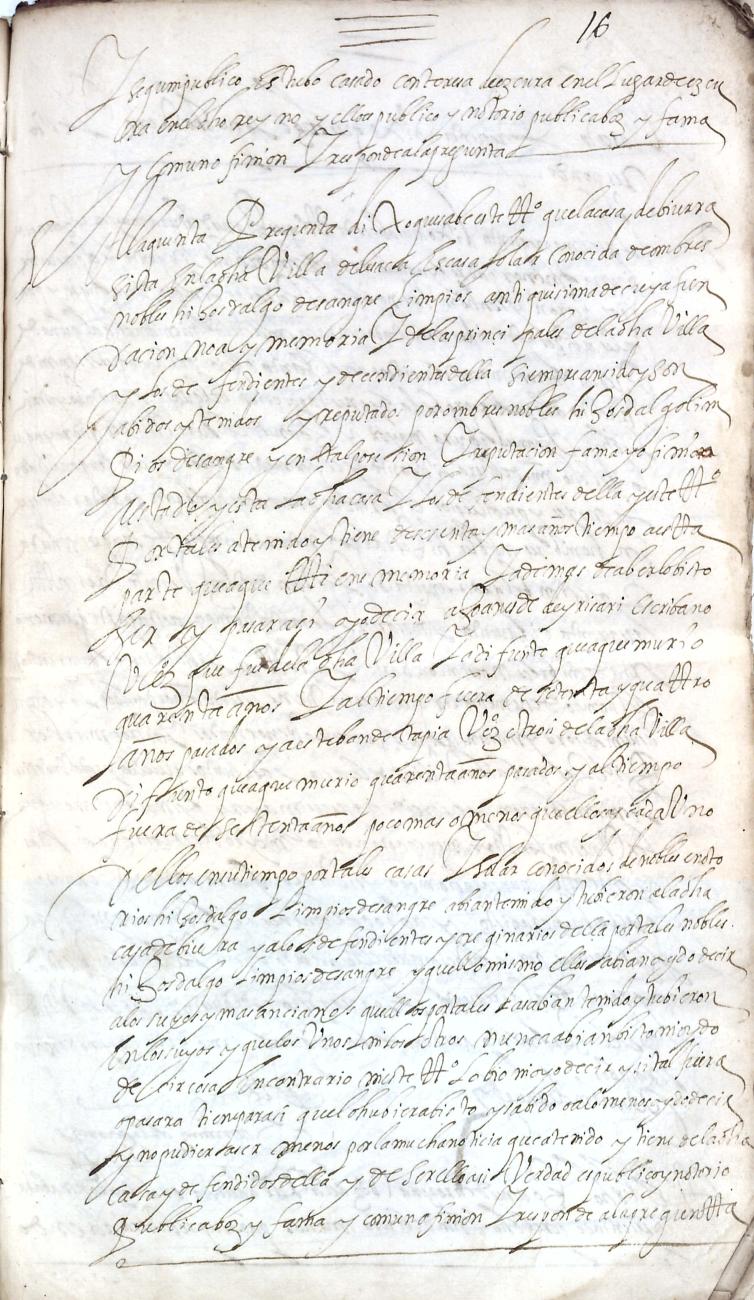 16
Y segun publico estubo casado con teresa de ezcurra en el lugar de ezcu
rra en el dho reyno y ello es publico y notorio publica boz y fama
y comun opinion Y responde a la pregunta
A la quinta Pregunta dixo que sabe este tto que la casa de biurra
sita en la dha Villa de es casa solar conocida de ombres
nobles hijosdalgo de sangre limpios antiquisima de cuya fun
dacion no ay memoria Y de las principales de la dha Villa
y los defendientes y decendientes della siempre an sido y son
abidos y tenidos y reputados por ombres nobles hijosdalgo lim
pios de sangre y en tal posesion Y reputacion fama y opinion
a estado y esta la dha casa Y los defendientes della y este tto
Por tales a tenido y tiene de sesenta y mas años tiempo a esta
parte que a que tiene memoria Y ademas de aberlo bisto
ser y pasar asi oydo decir a Joanes de escribano
Vezo que fue de la dha Villa Ya difunto que a que murio
quarenta años Y al tiempo fuera de setenta y quattro
años pasados y a esteban de tapia Vezo otrosi de la dha Villa
difunto que a que murio quarenta años pasados y al tiempo
fuera de setenta años poco mas o menos que ellos y cada Uno
dellos en su tiempo por tales casas Y solar conocidos de nobles noto
rios hijosdalgo limpios de sangre abian tenido y tubieron a la dha
casa de biurra y a los defendientes y originarios della por tales nobles
hijosdalgo limpios de sangre y que lo mismo ellos abian oydo decir
a los suyos y mas ancianos y que ellos por tales las abian tenido y tubieron
en los suyos y que los Unos ni los otros nunca abian bisto ni oydo
decir cosa en contrario ni este tto lo bio ni oyo decir y si tal fuera
o pasara tien para si que lo hubiera bisto y sabido o a lo menos oydo decir
y no pudiera ser menos por la mucha noticia que a tenido y tiene de la dha
casa y defendidos della y de ser ello asi Verdad es publico y notorio
Publica boz y fama y comun opinion Y responde a la pregunta